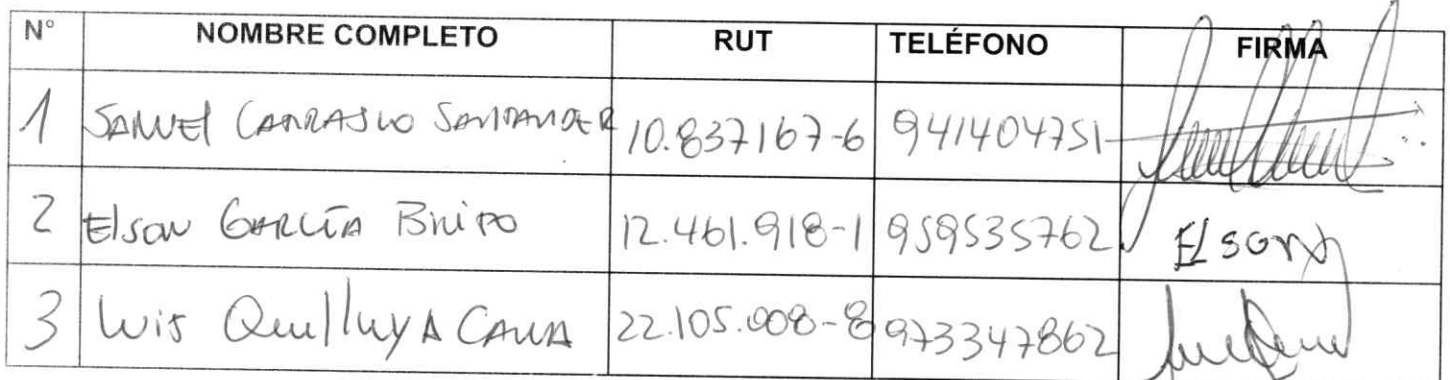 N° NOMBRE COMPLETO RUT TELÉFONO FIRMA
1 SAMUEl CARRASCO SANTANDER 10.837167-6 941404751
2 Elson GARCÍA BRITO 12.461.918-1 959535762 Elson
3 Luis Quilluya CAUA 22.105.008-8 973347862